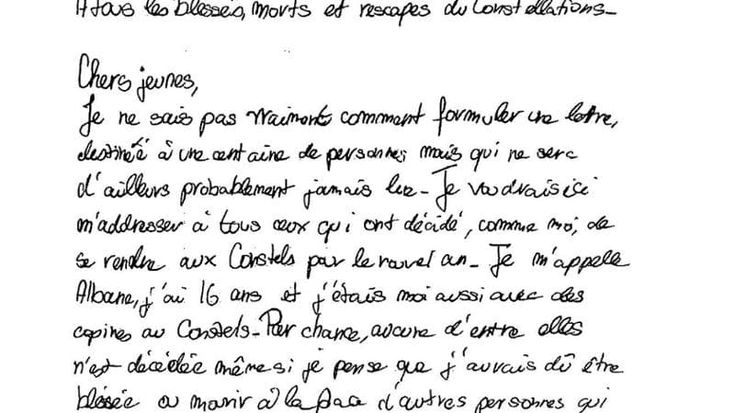 A tous les blessés, morts et rescapés du Constellations_
Chers jeunes,
Je ne sais pas vraiment comment formuler une lettre,
destinée à une centaine de personnes mais qui ne sera
d'ailleurs probablement jamais lue_ Je voudrais ici
m'addresser à tous ceux qui ont décidé, comme moi, de
se rendre aux Constels par le nouvel an_ Je m'appelle
Albane, j'ai 16 ans et j'étais moi aussi avec des
copines au Constels_ Par chance, aucune d'entre elles
n'est décédée même si je pense que j'aurais dû être
blessée ou mourir à la place d'autres personnes qui